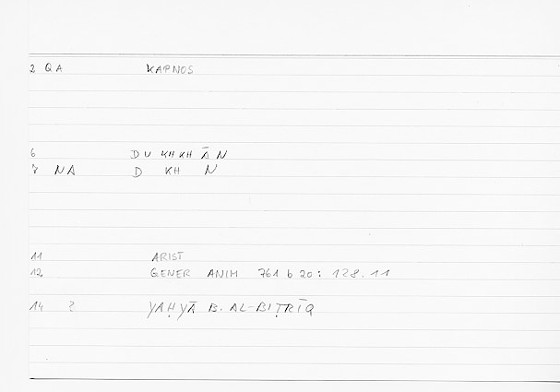 2 QA KAPNOS
6 DUKHKHĀN
7 NA D KH N
11 ARIST
12 GENER ANIM 761 b 20: 128.11
14 ? YAḤYĀ B. AL-BIṬRĪQ